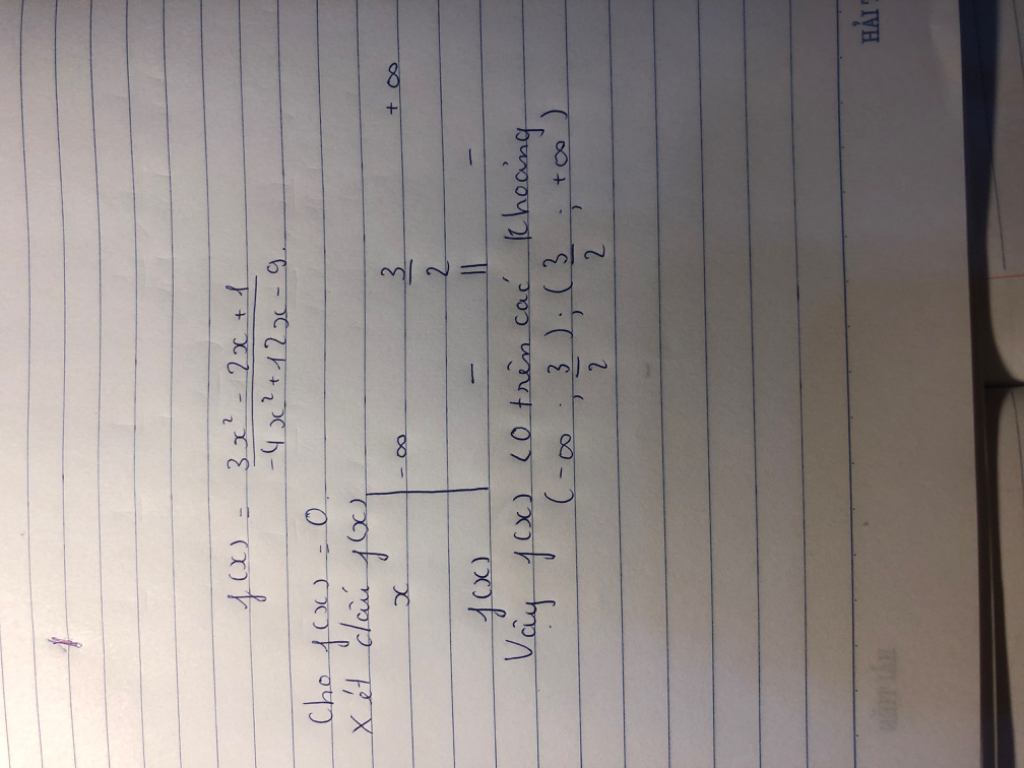 f(x) = 3x² - 2x + 1 / -4x² + 12x - 9.
Cho f(x) = 0
Xét dấu f(x)
x -∞ 3/2 +∞
f(x) - || -
Vậy f(x) < 0 trên các khoảng
(-∞ ; 3/2) ; (3/2 ; +∞)